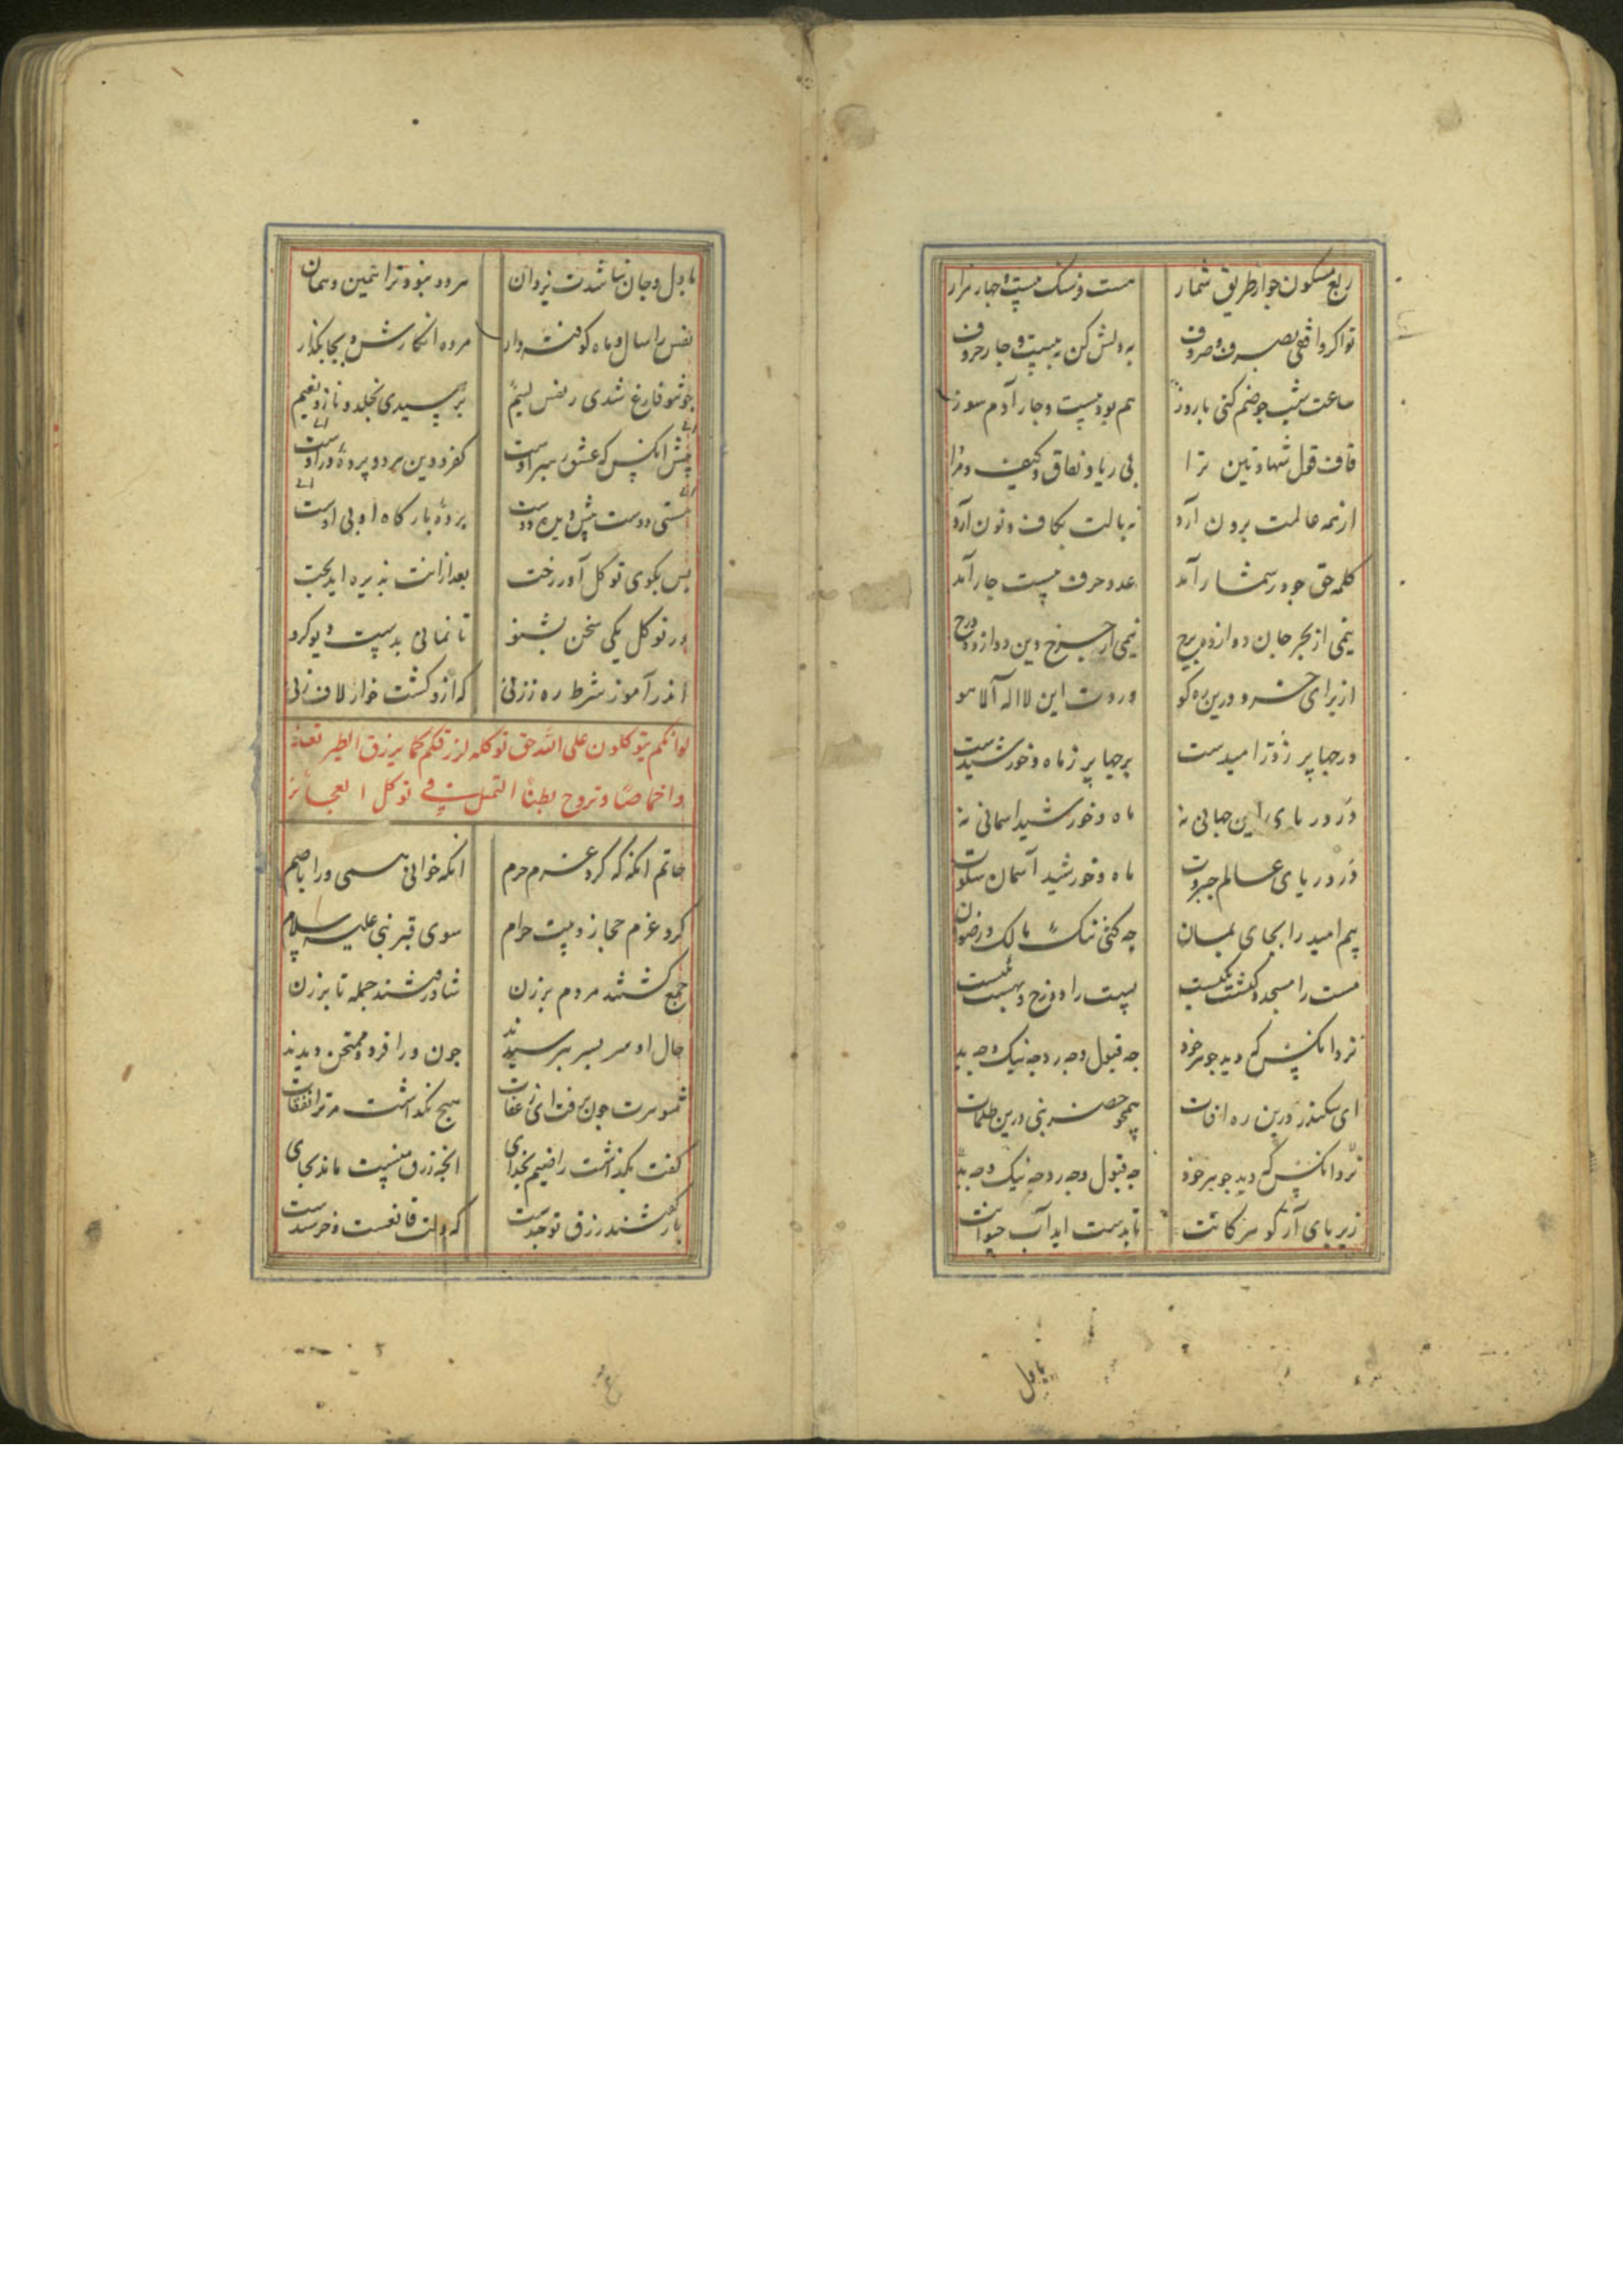 ربع مسکون جو از طریق شمار هست فرسنک بیست و چهار هزار
تو اکر واقفی بصرف و صروف بدلش کن به بیست و چار حروف
ساعت شب جو ضم کنی با روز هم بود بیست و چار آدم سوز
قاف قول شهادتین ترا بی ریا و نفاق و کیف و مرا
از همه عالمت برون آرد نه بالت بکاف و نون آرد
کلمه حق جو در شمار آمد عدد حرف بیست و چار آمد
نیمی از بحر جان دوازده برج نیمی از چرخ دین دوازده درج
از برای خرد درین ره کو وردت این لا اله الا هو
درجها پر ز در امیدست برجها پر ز ماه و خورشیدست
در دریای این جهانی نه ماه و خورشید اسمانی نه
در دریای عالم جبروت ماه و خورشید آسمان سکوت
بیم امید را بجای بمان چه کنی ننک مالک و رضوان
مست را مسجد و کنشت یکیست نیست را دوزخ و بهشت یکیست
نزد انکس که دید جوهر خود چه قبول و چه رد چه نیک و چه بد
ای سکندر درین ره افات همچو خضر نبی درین ظلمات
نزد انکس که دید جوهر خود چه قبول و چه رد چه نیک و چه بد
زیر پای آر کوهر کانت تا بدست اید آب حیوانت
با دل
با دل و جان نباشدت یزدان هر دو نبود ترا همین و همان
نفس را سال و ماه کوفته دار مرده انکارش و بجا بکذار
چو تو فارغ شدی ز نفس لئیم برسیدی بخلد و ناز و نعیم
پیش انکس که عشق رهبر اوست کفر و دین هر دو پرده در اوست
هستی دوست پیش دیده دوست پرده بارکاه او بی اوست
پس بکوی توکل آور رخت بعد ازانت پذیره اید بخت
در توکل یکی سخن بشنو تا نمانی بدست دیو کرو
اندر آموز شرط ره ز زنی که ازو کشت خوار لاف زنی
لو انکم تتوکلون علی الله حق توکله لرزقکم کما یرزق الطیر تغدو
خماصا و تروح بطانا التمثیل فی توکل العجائز
حاتم انکه که کرد عزم حرم انکه خوانی همی ورا باصم
کرد عزم حجاز و بیت حرام سوی قبر نبی علیه السلام
جمع کشتند مردم برزن شاد رفتند جمله تا بر زن
حال او سر بسر بپرسیدند چون ورا فرد و ممتحن دیدند
شوهرت چون برفت زی عرفات هیچ نکذاشت مر ترا نفقات
کفت بکذاشت راضیم بخدای انچه رزق منست ماند بجای
باز کفتند رزق تو چندست که دلت قانعست و خرسندست